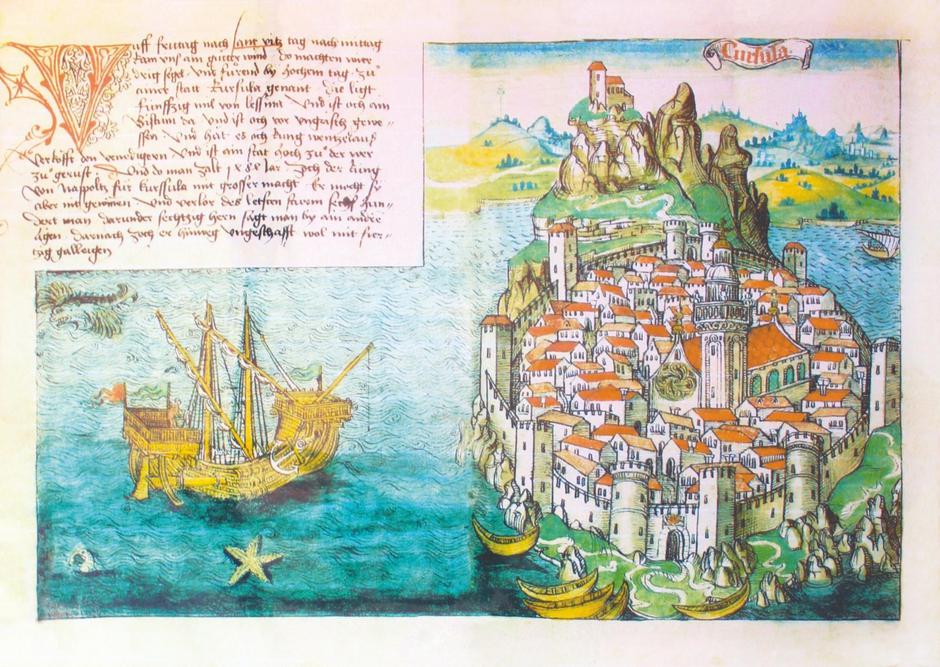 Uff frittag nach sant vitz tag nach mittag
kam vns ain gutter wind do machten wir
segel vnd fůrend by hochem tag zů
ainer statt Cursula genant die ligt
fünffzig mil von lessina vnd ist och ain
Bistum da vnd ist och vor vngrisch gewe
ssen vnd hat es och kung wentzelaus
verkofft den venedigern vnd ist ain stat hoch zů der wer
zů gerust vnd do man zalt iar zoch der kung
von Nappolis fur Cursula mit grosser macht Er mocht sy
aber nit gewinen vnd verlor des letsten sturm hun
dert man darunder sechtzig hern sagt man by ain ander
ligen darnach zoch er hinweg vngeschafft wol mit fier
tzig galleigen
Cursula